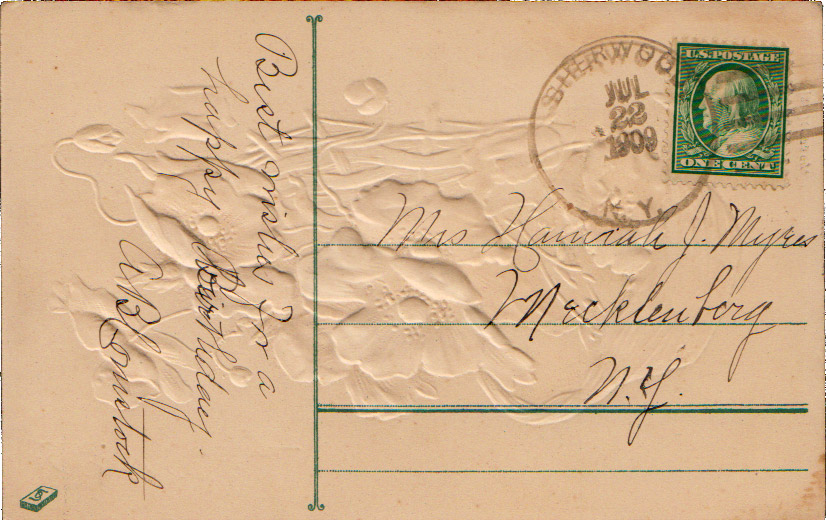 Best wishes for a
happy Birthday.
A B Comstock
SHERWOOD
JUL
22
1909
N.Y.
U.S. POSTAGE
ONE CENT
Mrs Hannah J. Myres
Mecklenberg
N.Y.